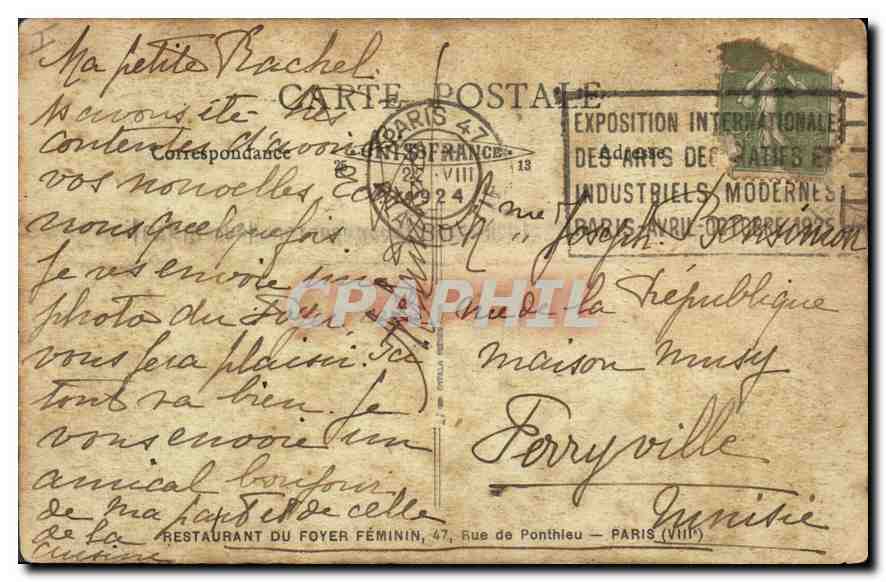 CARTE POSTALE
Correspondance
Adresse
Ma petite Rachel
ns avons été très
contentes d'avoir
vos nouvelles,
nous quelquefois
Je vs envoie une
photo du Foyer
vous fera plaisir. Ici
tout va bien. Je
vous envoie un
amical bonjour
de ma part et de celle
de la
cuisine
PARIS 47
25
13
FRANCE
VIII
1924
EXPOSITION INTERNATIONALE
DES ARTS DECORATIFS ET
INDUSTRIELS MODERNES
PARIS-AVRIL-OCTOBRE 1925
Mme Joseph Bensimon
rue de la République
maison musy
Ferryville
Tunisie
CPAPHIL
RESTAURANT DU FOYER FÉMININ, 47, Rue de Ponthieu — PARIS (VIIIe)